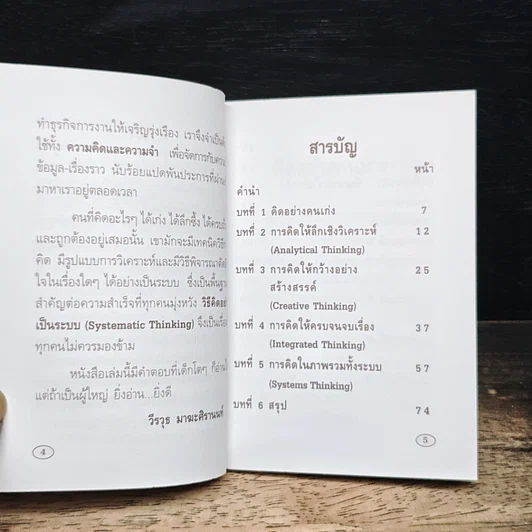 ทำธุรกิจการงานให้เจริญรุ่งเรือง เราจึงจำเป็นต้
ใช้ทั้ง ความคิดและความจำ เพื่อจัดการกับความ
ข้อมูล-เรื่องราว นับร้อยแปดพันประการที่ผ่าน
มาหาเราอยู่ตลอดเวลา
คนที่คิดอะไรๆ ได้เก่ง ได้ลึกซึ้ง ได้ครบถ้
และถูกต้องอยู่เสมอนั้น เขามักจะมีเทคนิควิธีก
คิด มีรูปแบบการวิเคราะห์และมีวิธีพิจารณาตัดสิ
ใจในเรื่องใดๆ ได้อย่างเป็นระบบ ซึ่งเป็นพื้นฐา
สำคัญต่อความสำเร็จที่ทุกคนมุ่งหวัง วิธีคิดอย่
เป็นระบบ (Systematic Thinking) จึงเป็นเรื่อ
ทุกคนไม่ควรมองข้าม
หนังสือเล่มนี้มีคำตอบที่เด็กโตๆ ก็อ่านไ
แต่ถ้าเป็นผู้ใหญ่ ยิ่งอ่าน...ยิ่งดี
วีรวุธ มาฆะศิรานนท์
4
สารบัญ
หน้า
คำนำ
บทที่ 1 คิดอย่างคนเก่ง 7
บทที่ 2 การคิดให้ลึกเชิงวิเคราะห์ 12
(Analytical Thinking)
บทที่ 3 การคิดให้กว้างอย่าง 25
สร้างสรรค์
(Creative Thinking)
บทที่ 4 การคิดให้ครบจนจบเรื่อง 37
(Integrated Thinking)
บทที่ 5 การคิดในภาพรวมทั้งระบบ 57
(Systems Thinking)
บทที่ 6 สรุป 74
5